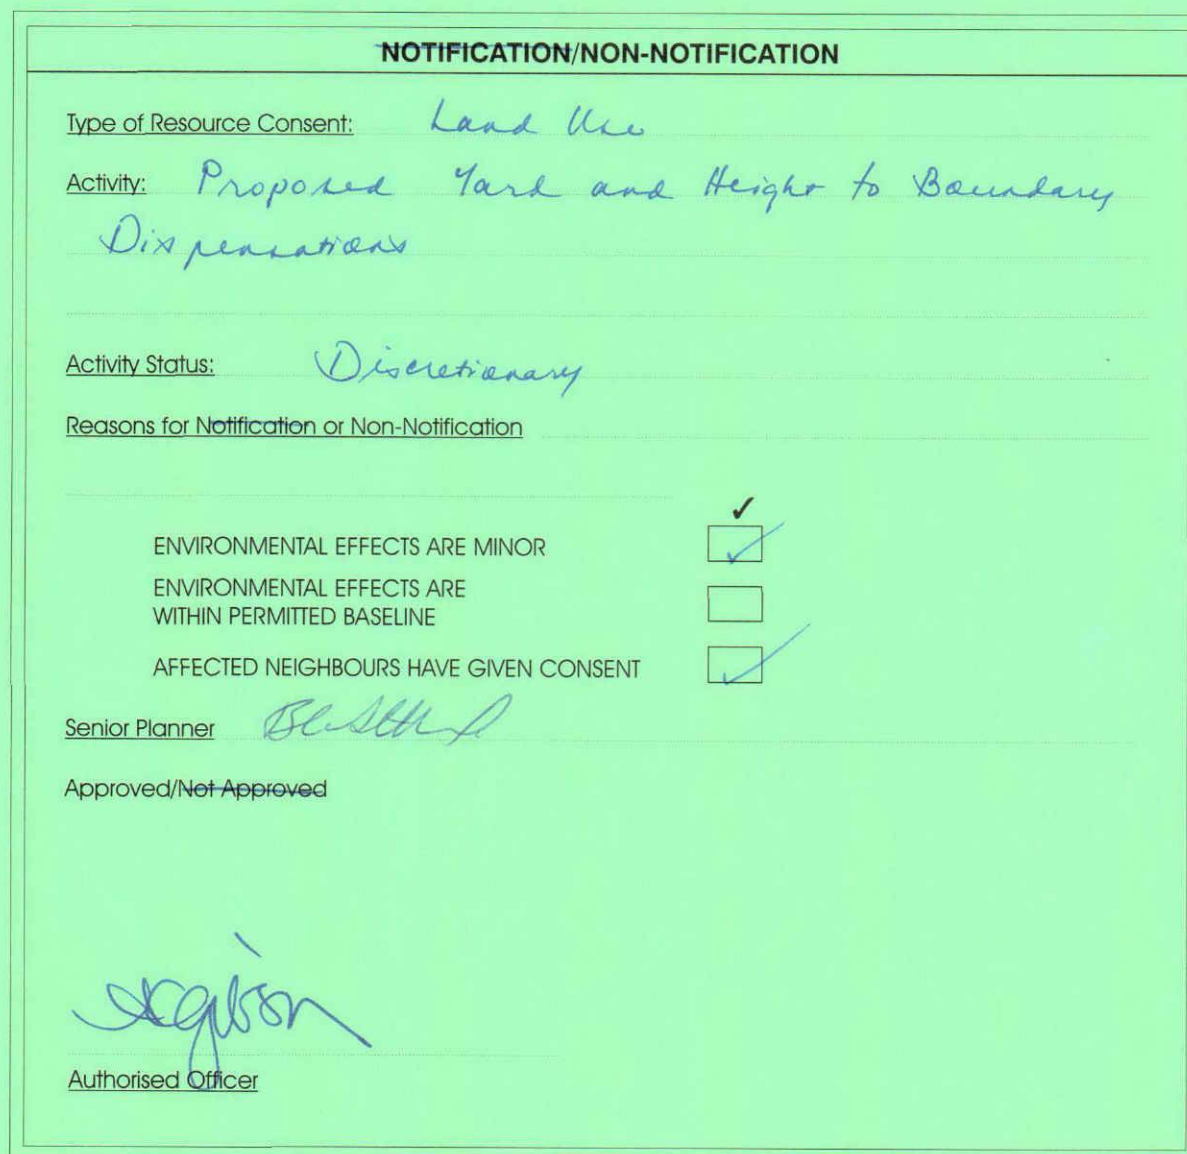 NOTIFICATION/NON-NOTIFICATION
Type of Resource Consent: Land Use
Activity: Proposed Yard and Height to Boundary
Dispensations
Activity Status: Discretionary
Reasons for Notification or Non-Notification
✓
ENVIRONMENTAL EFFECTS ARE MINOR ✓
ENVIRONMENTAL EFFECTS ARE
WITHIN PERMITTED BASELINE
AFFECTED NEIGHBOURS HAVE GIVEN CONSENT ✓
Senior Planner
Approved/Not Approved
Authorised Officer